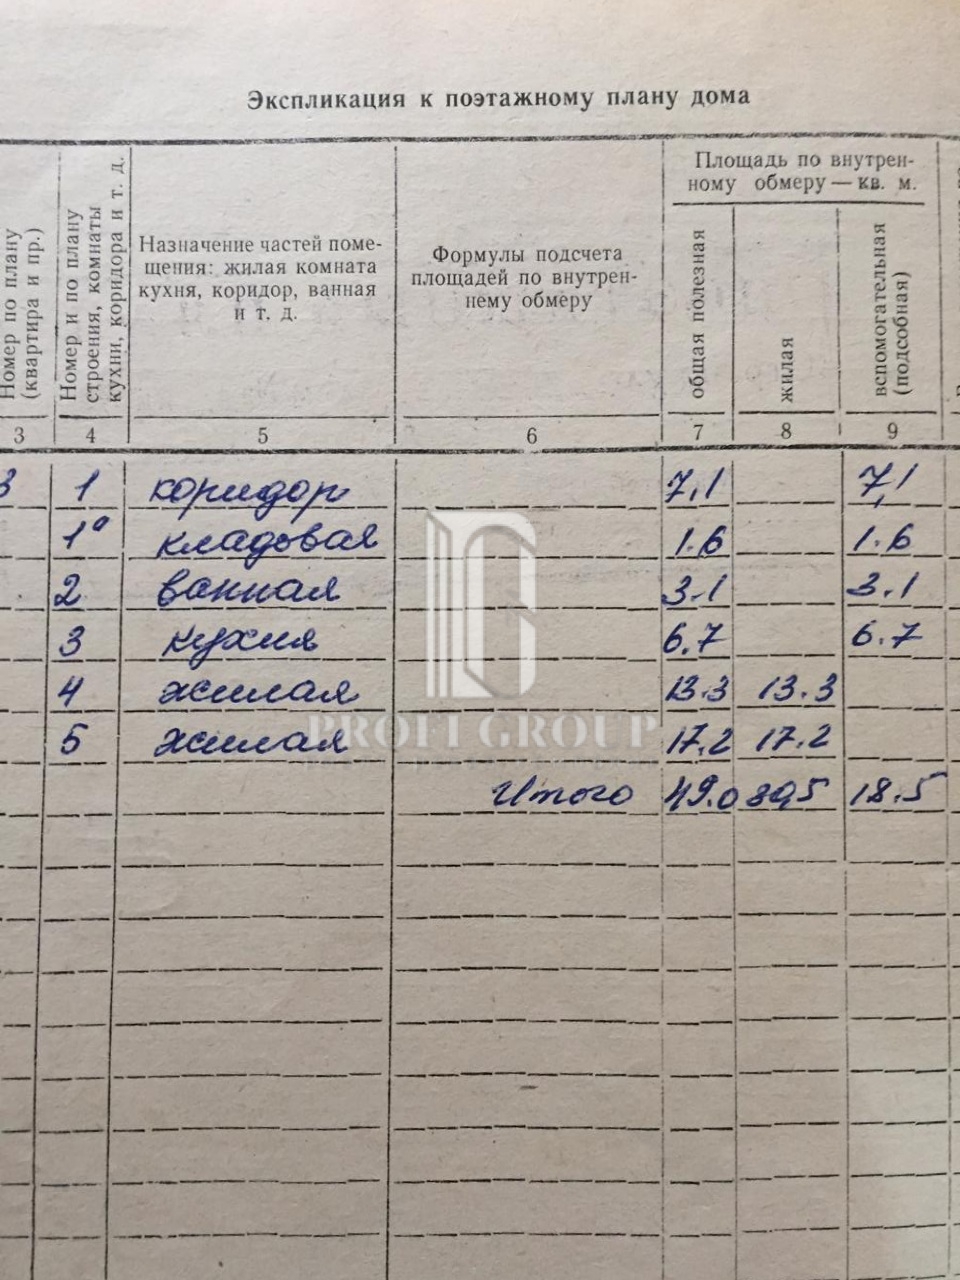 Экспликация к поэтажному плану дома
Номер по плану
(квартира и пр.)
Номер и по плану
строения, комнаты
кухни, коридора и т. д.
Назначение частей поме-
щения: жилая комната
кухня, коридор, ванная
и т. д.
Формулы подсчета
площадей по внутрен-
нему обмеру
Площадь по внутрен-
ному обмеру — кв. м.
общая полезная
жилая
вспомогательная
(подсобная)
3 4 5 6 7 8 9
3 1 коридор 7,1 7,1
1а кладовая 1.6 1.6
2 ванная 3.1 3.1
3 кухня 6.7 6.7
4 жилая 13.3 13.3
5 жилая 17.2 17.2
Итого 49.0 30,5 18.5
PROFI GROUP